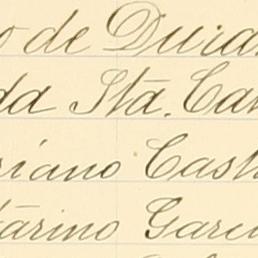 o de Duran
da Sta. Car
riano Cast
tarino Garci